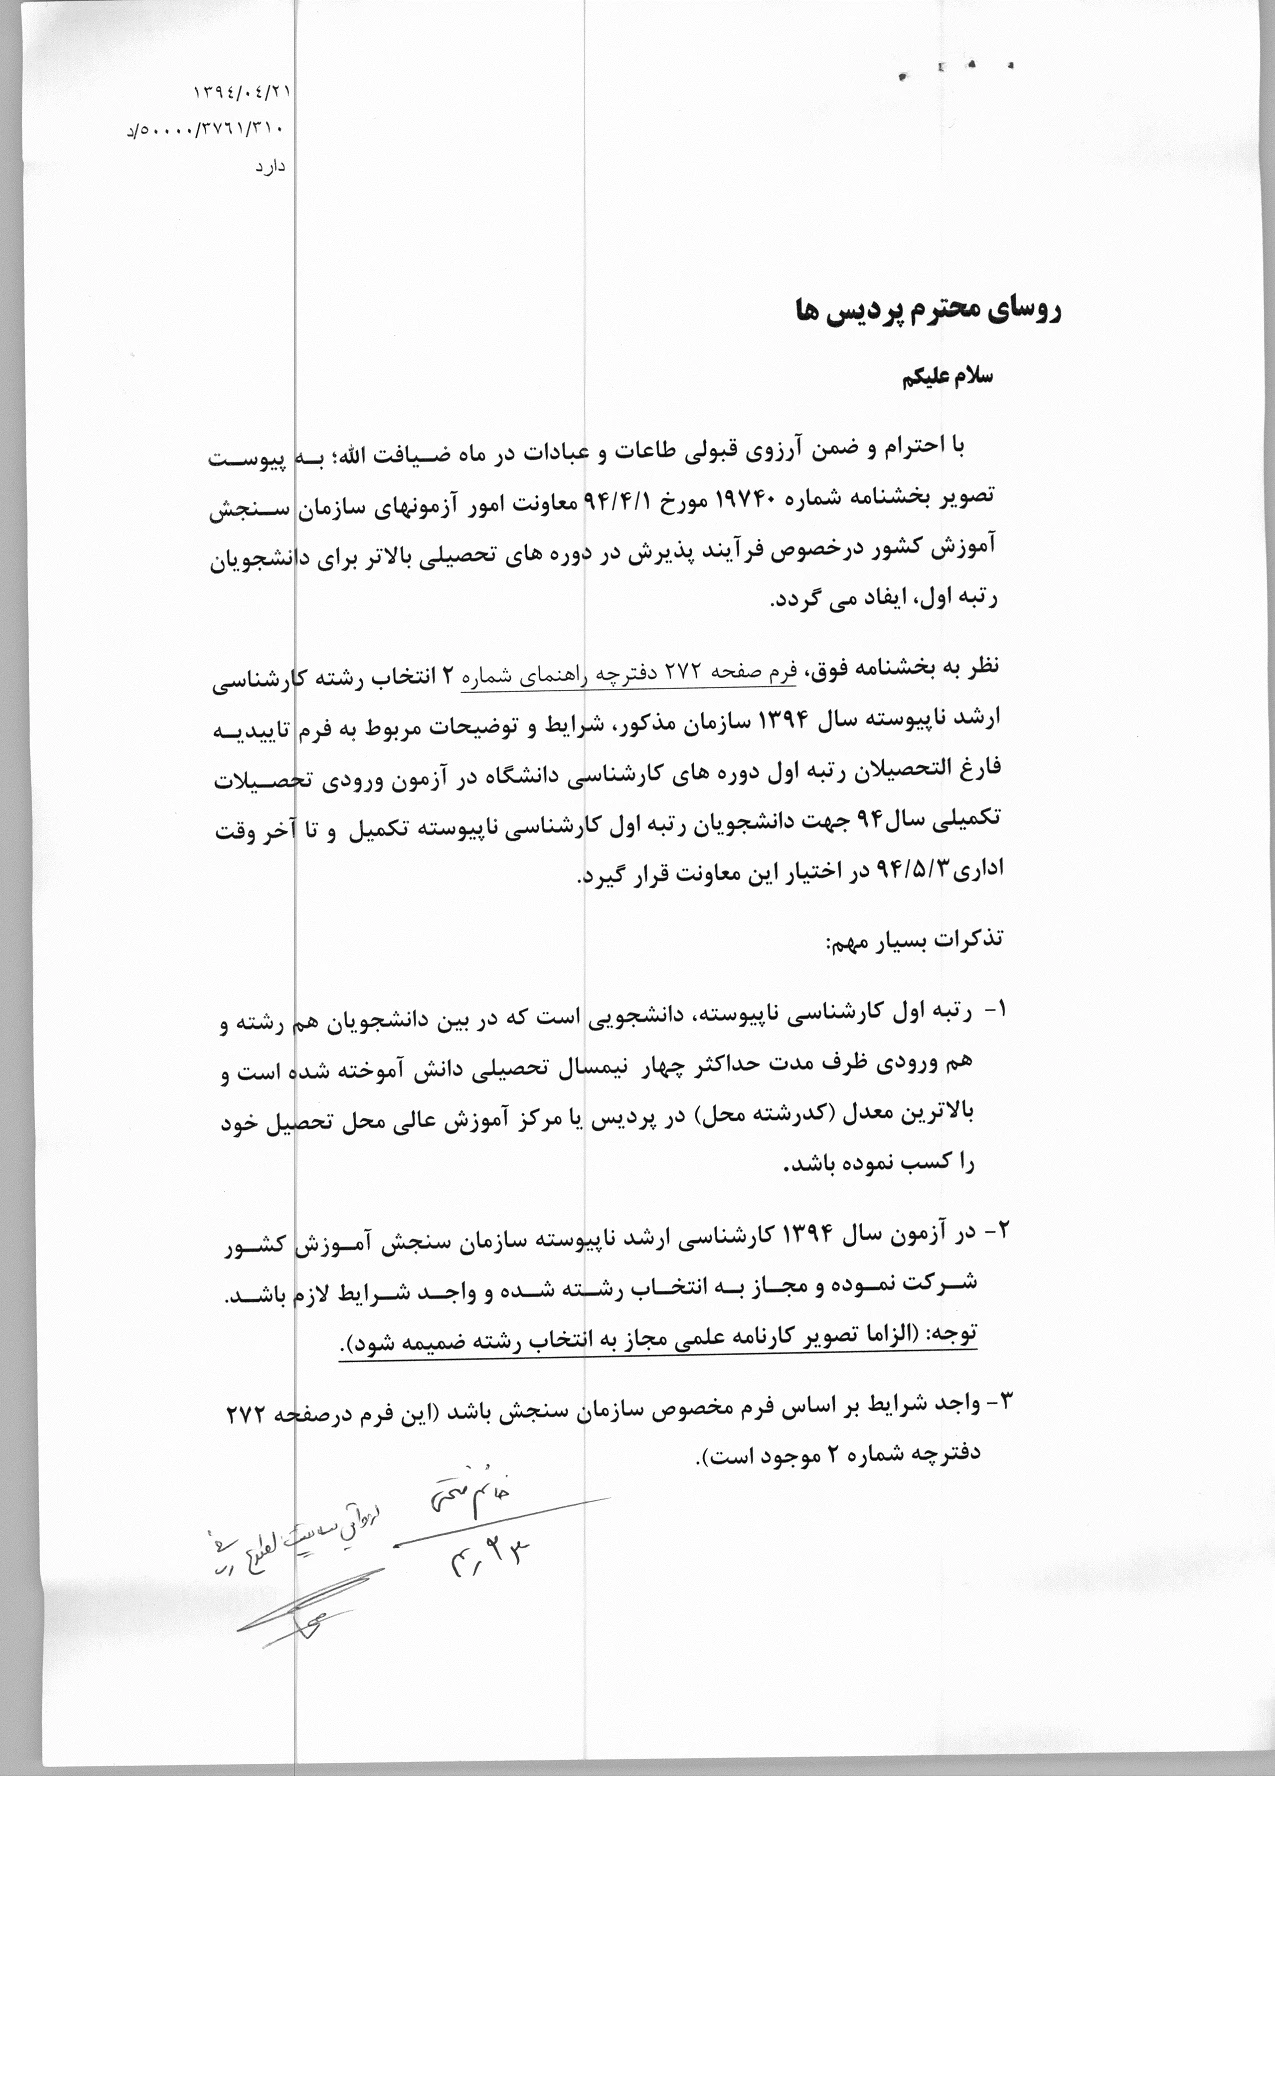 ۱۳۹٤/۰٤/۲۱
د/۵۰۰۰۰/۳۷٦۱/۳۱۰
دارد
روسای محترم پردیس ها
سلام علیکم
با احترام و ضمن آرزوی قبولی طاعات و عبادات در ماه ضیافت الله؛ به پیوست
تصویر بخشنامه شماره ۱۹۷۴۰ مورخ ۹۴/۴/۱ معاونت امور آزمونهای سازمان سنجش
آموزش کشور درخصوص فرآیند پذیرش در دوره های تحصیلی بالاتر برای دانشجویان
رتبه اول، ایفاد می گردد.
نظر به بخشنامه فوق، فرم صفحه ۲۷۲ دفترچه راهنمای شماره ۲ انتخاب رشته کارشناسی
ارشد ناپیوسته سال ۱۳۹۴ سازمان مذکور، شرایط و توضیحات مربوط به فرم تاییدیه
فارغ التحصیلان رتبه اول دوره های کارشناسی دانشگاه در آزمون ورودی تحصیلات
تکمیلی سال۹۴ جهت دانشجویان رتبه اول کارشناسی ناپیوسته تکمیل و تا آخر وقت
اداری۹۴/۵/۳ در اختیار این معاونت قرار گیرد.
تذکرات بسیار مهم:
۱- رتبه اول کارشناسی ناپیوسته، دانشجویی است که در بین دانشجویان هم رشته و
هم ورودی ظرف مدت حداکثر چهار نیمسال تحصیلی دانش آموخته شده است و
بالاترین معدل (کدرشته محل) در پردیس یا مرکز آموزش عالی محل تحصیل خود
را کسب نموده باشد.
۲- در آزمون سال ۱۳۹۴ کارشناسی ارشد ناپیوسته سازمان سنجش آموزش کشور
شرکت نموده و مجاز به انتخاب رشته شده و واجد شرایط لازم باشد.
توجه: (الزاما تصویر کارنامه علمی مجاز به انتخاب رشته ضمیمه شود).
۳- واجد شرایط بر اساس فرم مخصوص سازمان سنجش باشد (این فرم درصفحه ۲۷۲
دفترچه شماره ۲ موجود است).